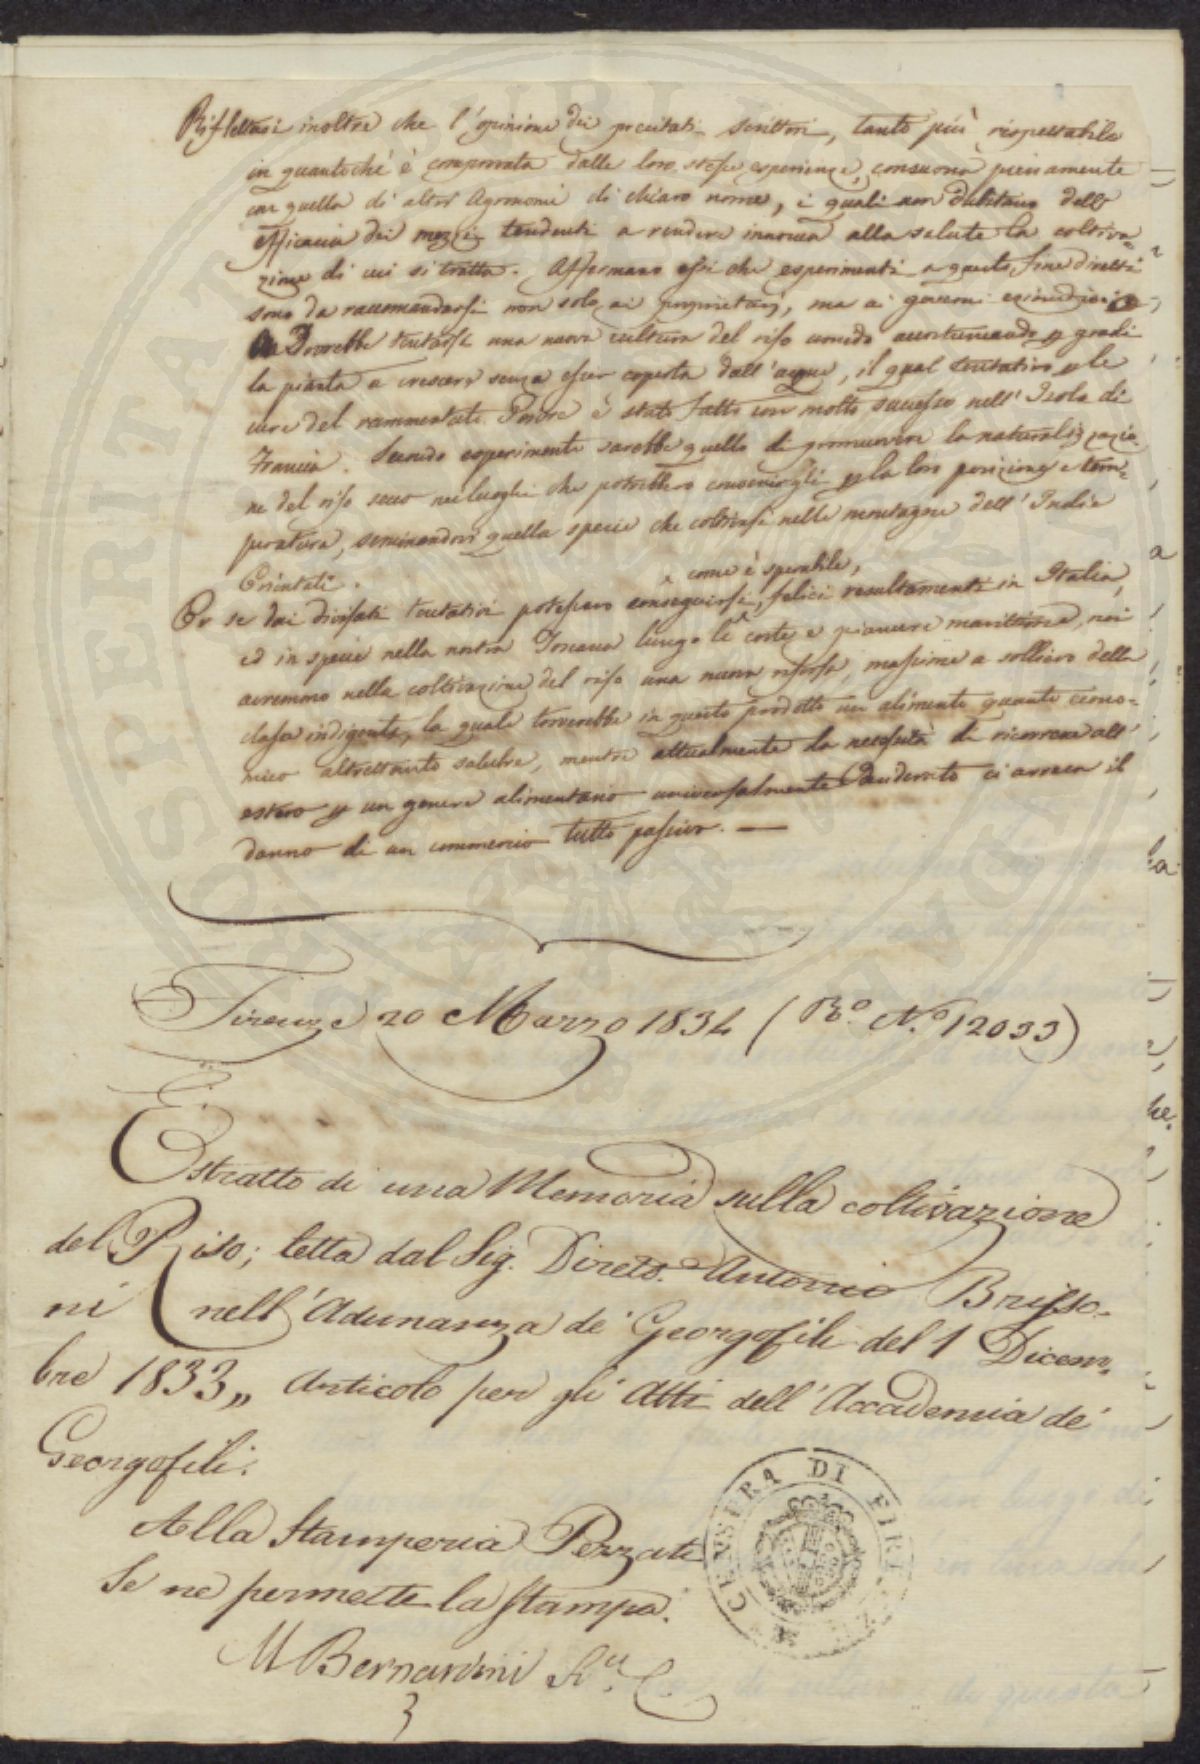 Riflettasi inoltre che l'opinione dei precitati scrittori, tanto più rispettabile
in quantoché è comprovata dalle loro stesse esperienze, consuona pienamente
con quella di altri Agronomi di chiaro nome, i quali non dubitano dell'
efficacia dei mezzi tendenti a rendere innocua alla salute la coltiva=
zione di cui si tratta. Affermano essi che esperimenti a questo fine diretti
sono da raccomandarsi non solo ai proprietarj, ma ai governi
Dovrebbe tentarsi una nuova cultura del riso umido accostumando p gradi
la pianta a crescere senza esser coperta dall'acqua, il qual tentativo p le
cure del rammentato Poivre è stato fatto con molto successo nell'Isola di
Francia. Secondo esperimento sarebbe quello di promuovere la naturalizzazio=
ne del riso secco nei luoghi che potrebbero convenirgli p la loro posizione e tem=
peratura, seminandovi quella specie che coltivasi nelle montagne dell'India
Orientali.
come è sperabile,
Or se dai divisati tentativi potessero conseguirsi, felici resultamenti in Italia,
ed in specie nella nostra Toscana lungo le coste e pianure marittime, noi
avremmo nella coltivazione del riso una nuova risorsa, massime a sollievo della
classe indigente, la quale troverebbe in questo prodotto un alimento quanto econo=
mico altrettanto salubre, mentre attualmente la necessità di ricorrere all'
estero p un genere alimentario universalmente desiderato ci arreca il
danno di un commercio tutto passivo. —
Firenze 20 Marzo 1834 (Ro. No. 12033)
Estratto di una Memoria sulla coltivazione
del Riso; letta dal Sig. Diret. Antonio Brisso=
ni nell'Adunanza de' Georgofili del 1 Dicem=
bre 1833,, Articolo per gli Atti dell'Accademia de'
Georgofili.
Alla Stamperia Pezzati
Se ne permette la Stampa.
M Bernardini
3
CENSURA DI FIRENZE